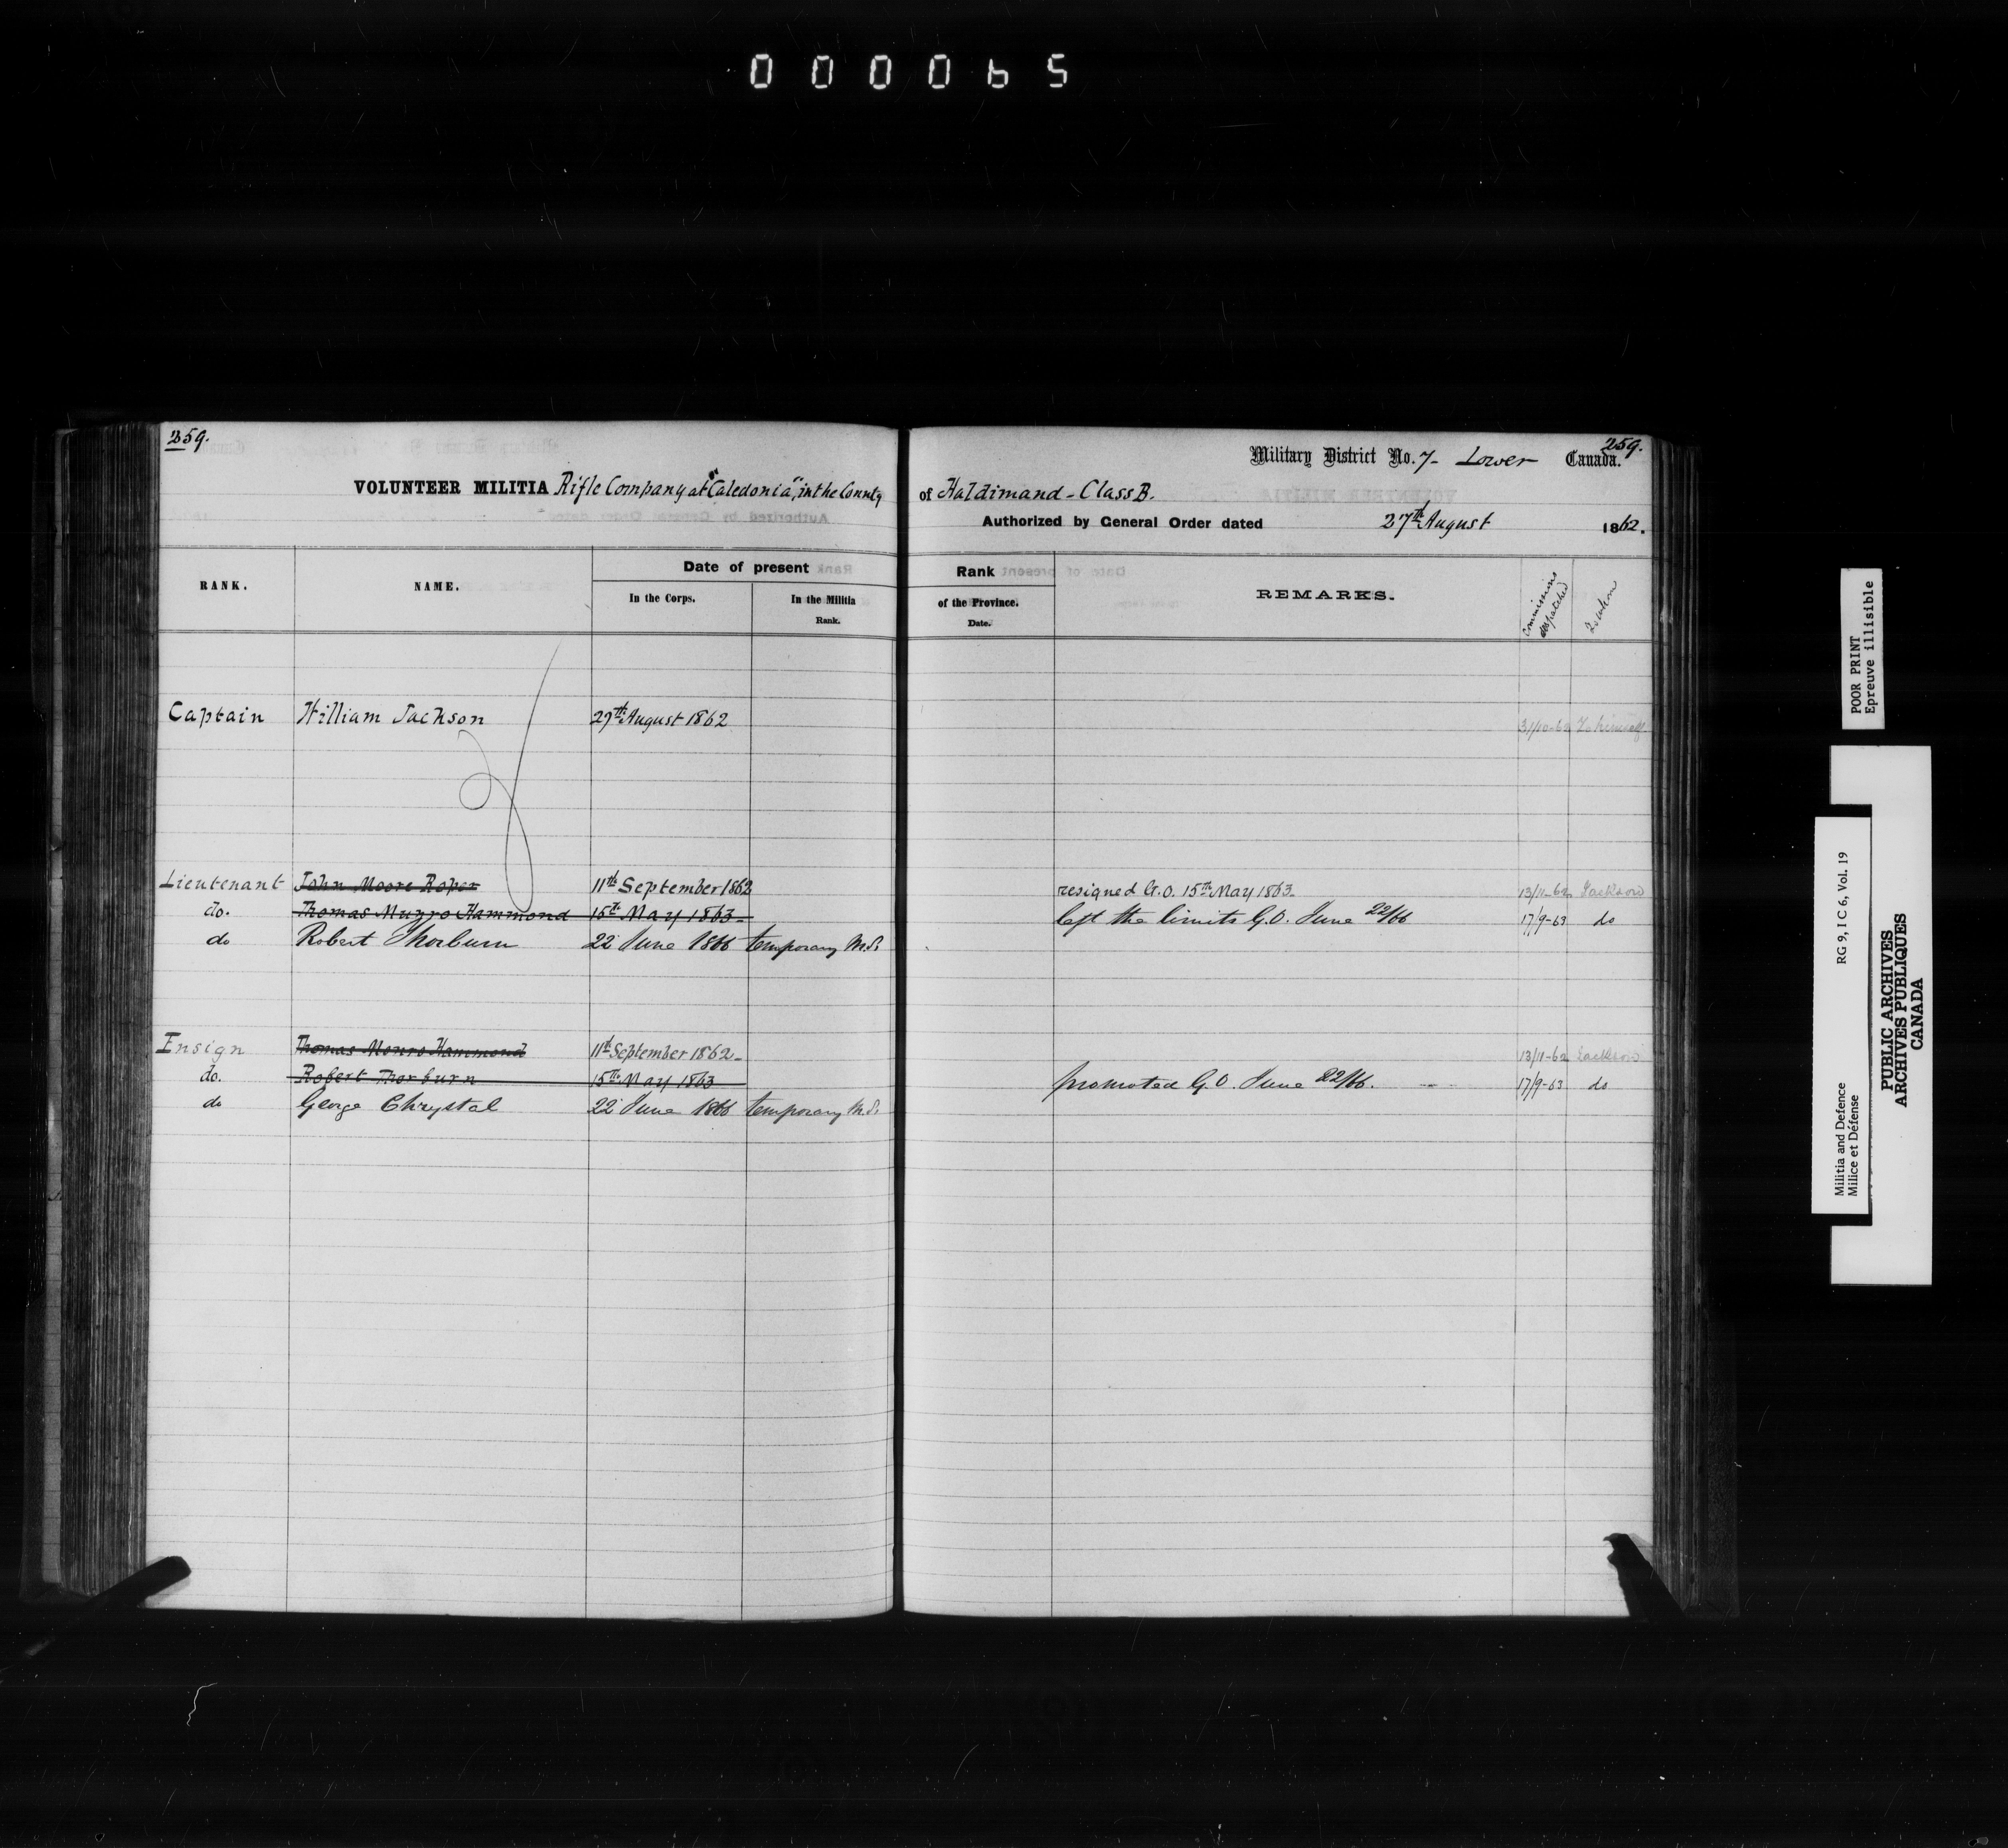 000065
259.
259.
Military District No. 7- Lower Canada.
VOLUNTEER MILITIA Rifle Company at "Caledonia", in the County of Haldimand - Class B.
Authorized by General Order dated 27th August 1862.
RANK. NAME. Date of present Rank REMARKS. Commissions despatched
In the Corps. In the Militia of the Province.
Rank. Date.
Captain William Jackson 27th August 1862 31/10-62 To himself.
Lieutenant John Moore Roper 11th September 1862 resigned G.O. 15th May 1863 13/11-62 Jackson
do. Thomas Munro Hammond 15th May 1863- left the limits G.O. June 22/66 17/9-63 do
do Robert Thorburn 22 June 1866 temporary M.S.
Ensign Thomas Monro Hammond 11th September 1862- 13/11-62 Jackson
do. Robert Thorburn 15th May 1863 promoted G.O. June 22/66. 17/9-63 do
do George Chrystal 22 June 1866 temporary M.S.
POOR PRINT
Epreuve illisible
Militia and Defence RG 9, I C 6, Vol. 19
Milice et Défense
PUBLIC ARCHIVES
ARCHIVES PUBLIQUES
CANADA